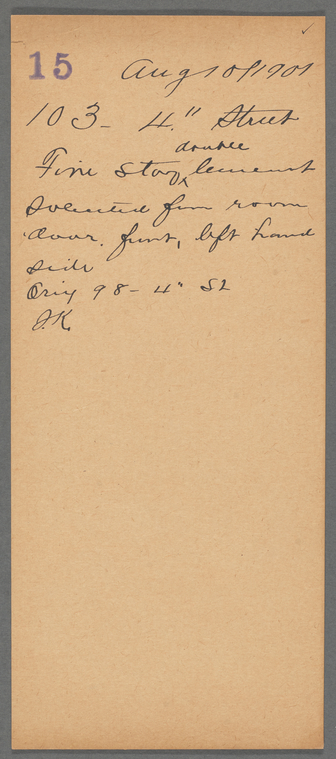 15
Aug 10/1901
103 - 4" Street
double
Five story tenement
Solicited from room
door. front, left hand
side
Orig 98 - 4" St
J.K.